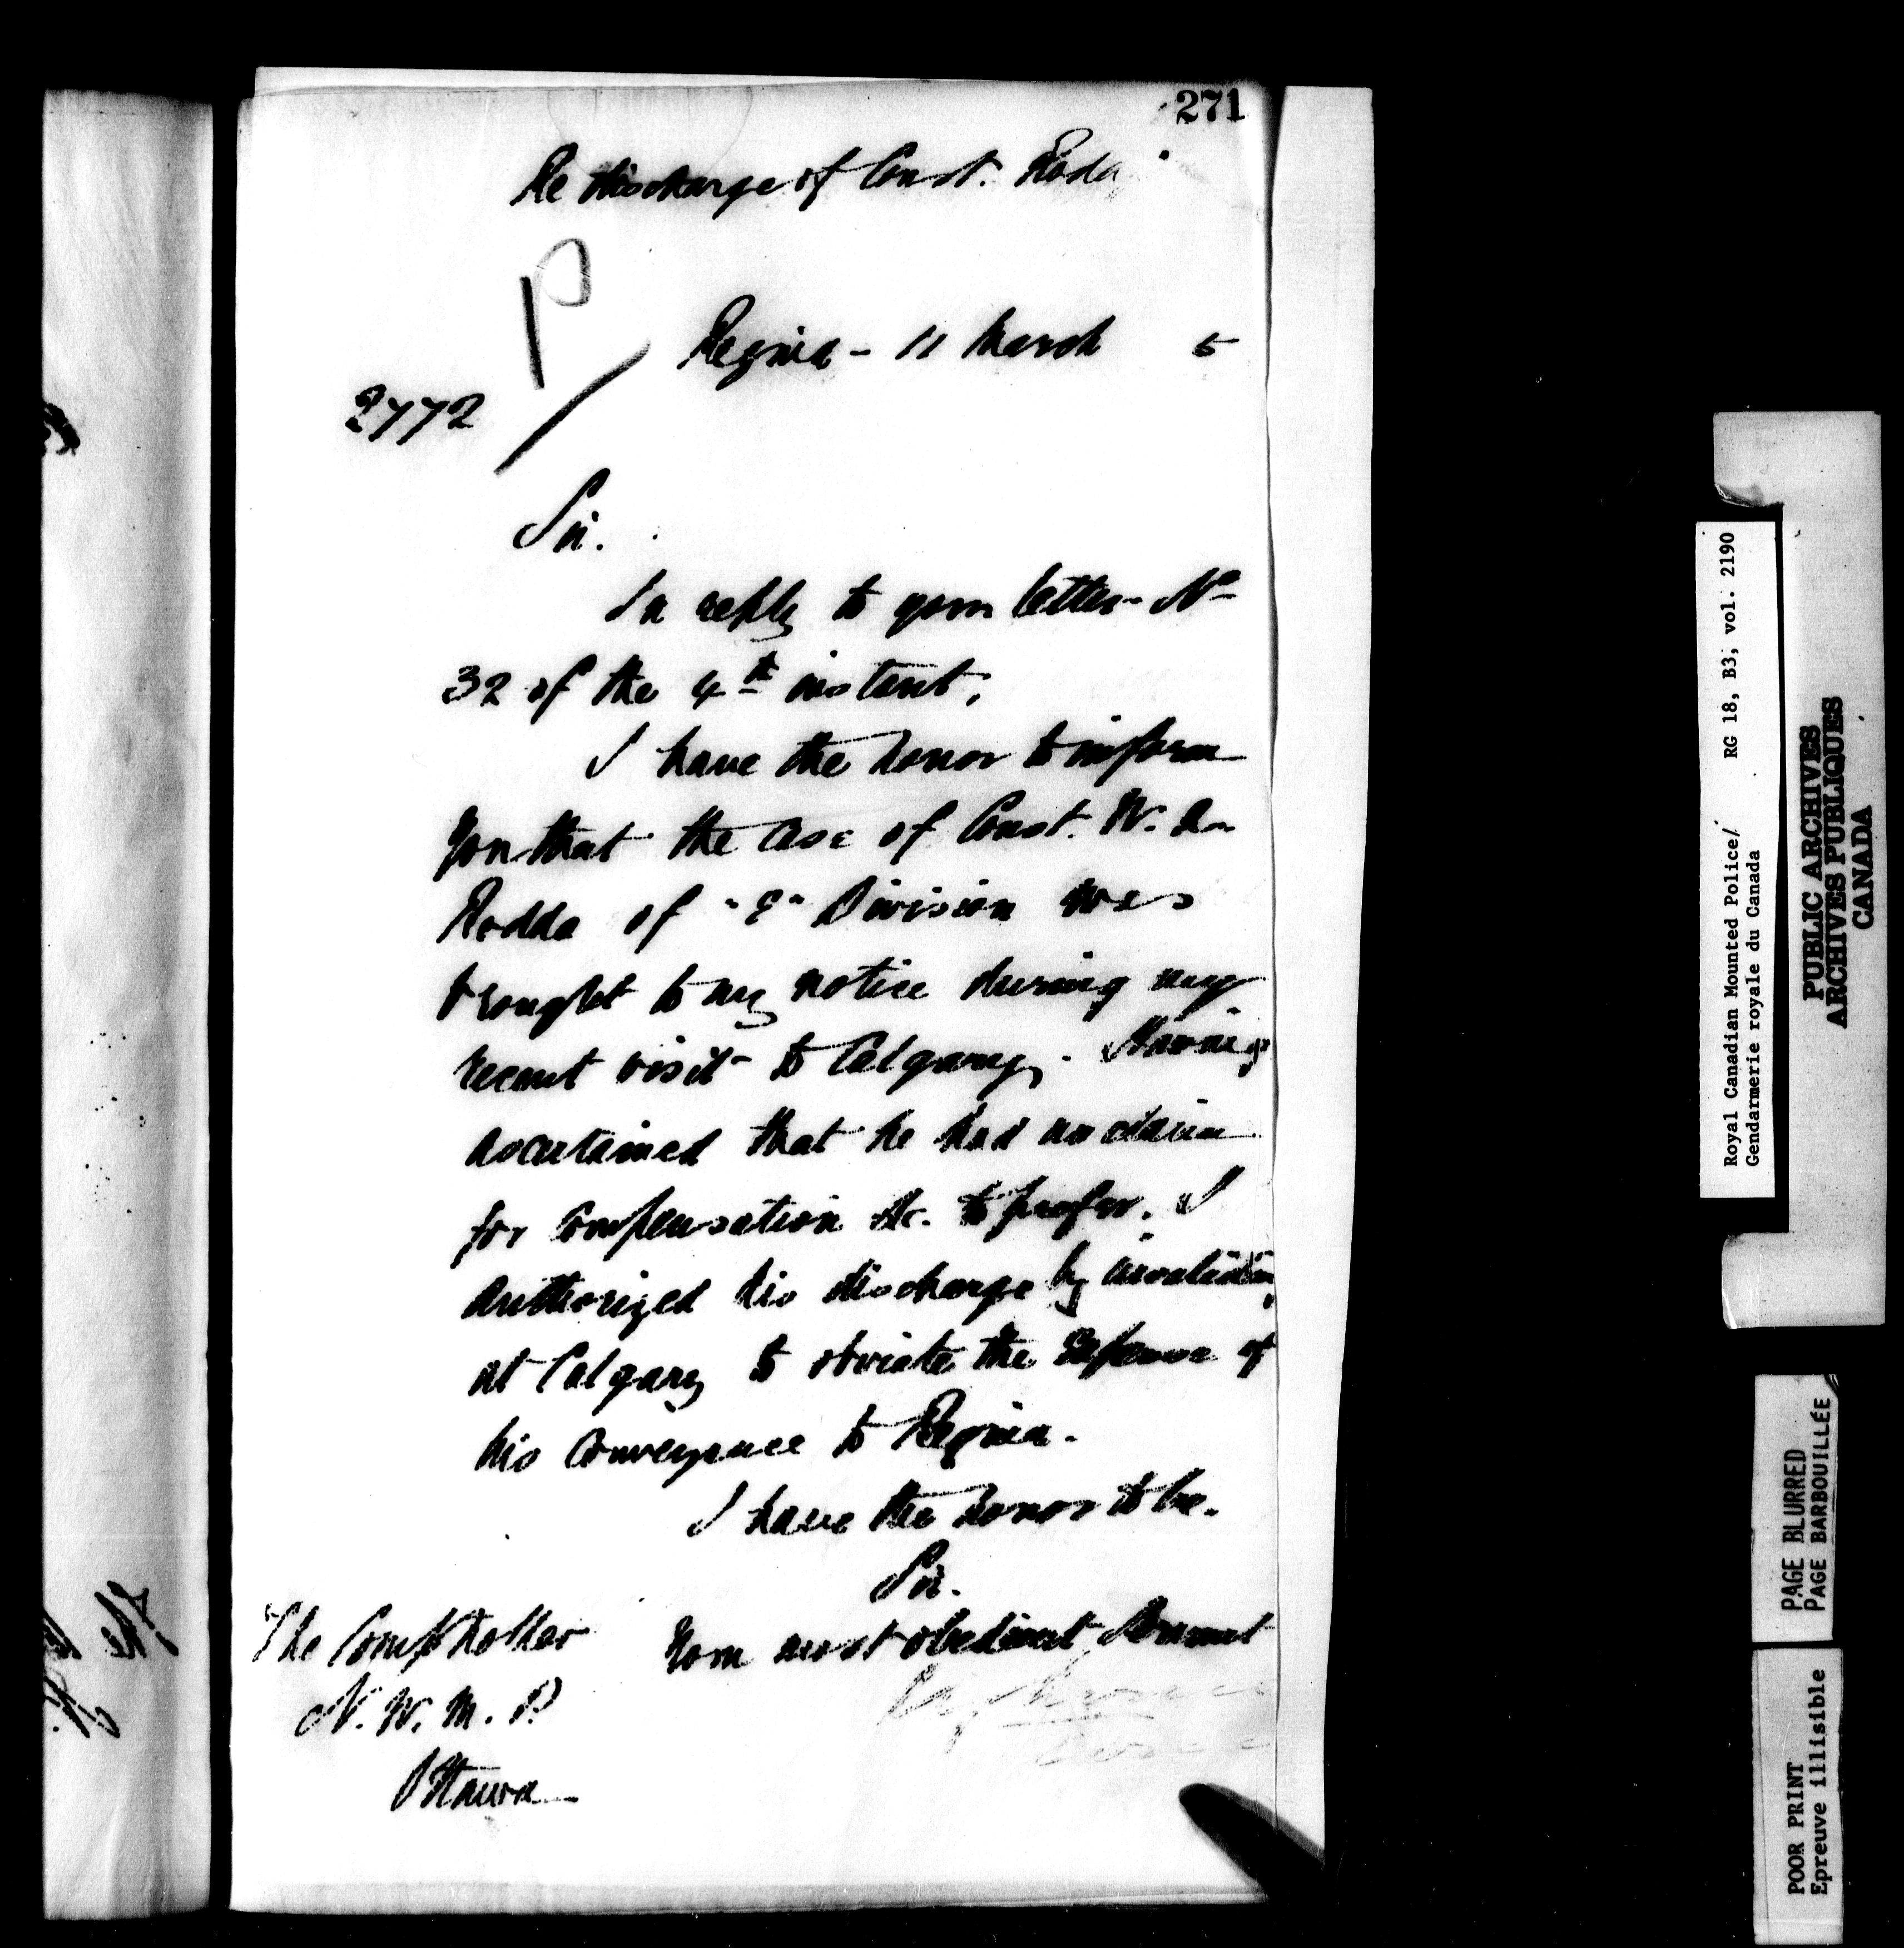 271
Re discharge of Const. Rodda
P
Regina - 11 March 5
2772
Sir.
In reply to your letter No
32 of the 4th instant,
I have the honor to inform
you that the case of Const. W.
Rodda of "E" Division was
brought to my notice during my
recent visit to Calgary. Having
ascertained that he had no claim
for compensation &c. to prefer. I
authorized his discharge by invaliding
at Calgary to obviate the expense of
his conveyance to Regina.
I have the honor to be.
Sir.
Your most obedient Servant
The Comptroller
N. W. M. P.
Ottawa
Royal Canadian Mounted Police/ RG 18, B3, vol. 2190
Gendarmerie royale du Canada
PUBLIC ARCHIVES
ARCHIVES PUBLIQUES
CANADA
PAGE BLURRED
PAGE BARBOUILLÉE
POOR PRINT
Epreuve illisible